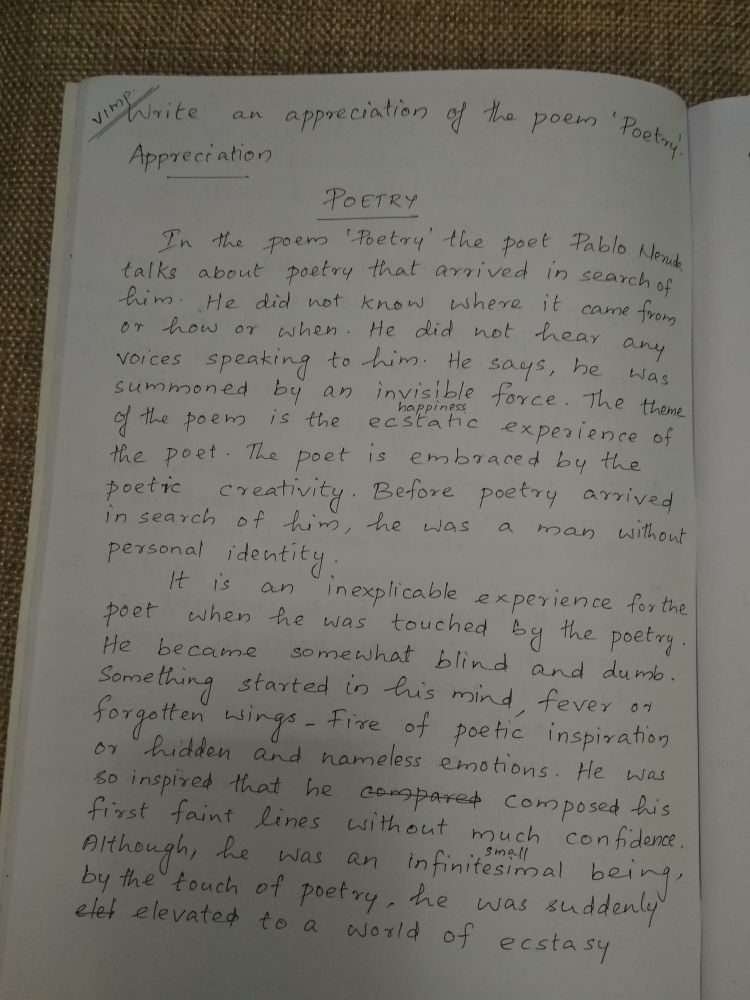 V Imp.
Write an appreciation of the poem 'Poetry'.
Appreciation
POETRY
In the poem 'Poetry' the poet Pablo Neruda
talks about poetry that arrived in search of
him. He did not know where it came from
or how or when. He did not hear any
voices speaking to him. He says, he was
summoned by an invisible force. The theme
happiness
of the poem is the ecstatic experience of
the poet. The poet is embraced by the
poetic creativity. Before poetry arrived
in search of him, he was a man without
personal identity.
It is an inexplicable experience for the
poet when he was touched by the poetry.
He became somewhat blind and dumb.
Something started in his mind, fever or
forgotten wings - Fire of poetic inspiration
or hidden and nameless emotions. He was
so inspired that he compared composed his
first faint lines without much confidence.
small
Although, he was an infinitesimal being,
by the touch of poetry, he was suddenly
elet elevated to a world of ecstasy